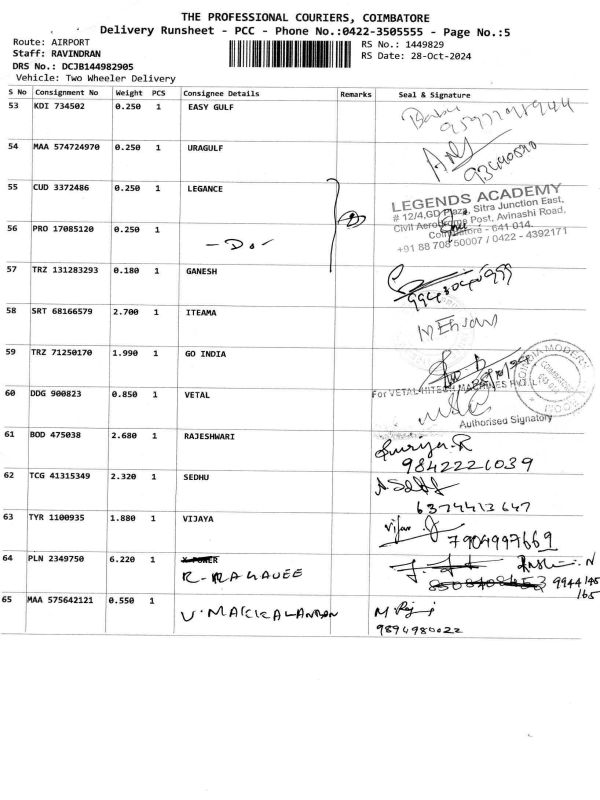 THE PROFESSIONAL COURIERS, COIMBATORE
Delivery Runsheet - PCC - Phone No.:0422-3505555 - Page No.:5
Route: AIRPORT RS No.: 1449829
Staff: RAVINDRAN RS Date: 28-Oct-2024
DRS No.: DCJB144982905
Vehicle: Two Wheeler Delivery
S No Consignment No Weight PCS Consignee Details Remarks Seal & Signature
53 KDI 734502 0.250 1 EASY GULF
54 MAA 574724970 0.250 1 URAGULF
55 CUD 3372486 0.250 1 LEGANCE
LEGENDS ACADEMY
# 12/4,GD Plaza, Sitra Junction East,
Civil Aerodrome Post, Avinashi Road,
Coimbatore - 641 014.
+91 88 708 50007 / 0422 - 4392171
56 PRO 17085120 0.250 1
- Do -
57 TRZ 131283293 0.180 1 GANESH
58 SRT 68166579 2.700 1 ITEAMA
59 TRZ 71250170 1.990 1 GO INDIA
60 DDG 900823 0.850 1 VETAL
For VETAL HITECH MACHINES PVT. LTD.
Authorised Signatory
61 BOD 475038 2.680 1 RAJESHWARI
Suriya.R
9842221039
62 TCG 41315349 2.320 1 SEDHU
6374413647
63 TYR 1100935 1.880 1 VIJAYA
7904997669
64 PLN 2349750 6.220 1 X POWER
R-RAGAVEE
9944145
165
65 MAA 575642121 0.550 1
9894980022